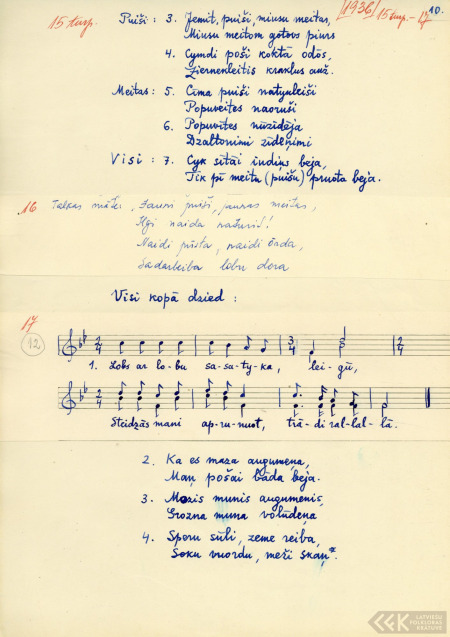 15 turp.
[1936] 15 turp. - 17
10.
Puiši: 3. Jemit, puiši, miusu meitas,
Miusu meitom gotovs piurs
4. Cymdi poši koktā odōs,
Ziernenleitis kraklus auž.
Meitas: 5. Cīma puiši
Popuveites naoruši
6. Popuvītes nūzīdēja
Dzaltonimi zīdeņimi
Visi: 7. Cyk sītāi iudiņs beja,
Tik pī meitu (puišu) pruota beja.
16 Talkas māte: Jauni puiši, jaunas meitas,
naida
Naidi pīsta, naidi ārda,
Sadarleiba lobu dora
Visi kopā dzied:
17
12
2 4 3 4 2 4
1. Lobs ar lo-bu sa-sa-ty-ka, lei-gū,
2 4
Steidzās mani ap-ru-nuot, trā-di ral-lal-lā.
2. Ka es maza augumeņa,
Maņ pošai bāda beja.
3. Mozis munis augumenis,
Grozna muna volūdeņa
4. Sporu sūli, zeme reiba,
Soku vuordu, meži skaņ*.
LFK
LATVIEŠU
FOLKLORAS
KRĀTUVE